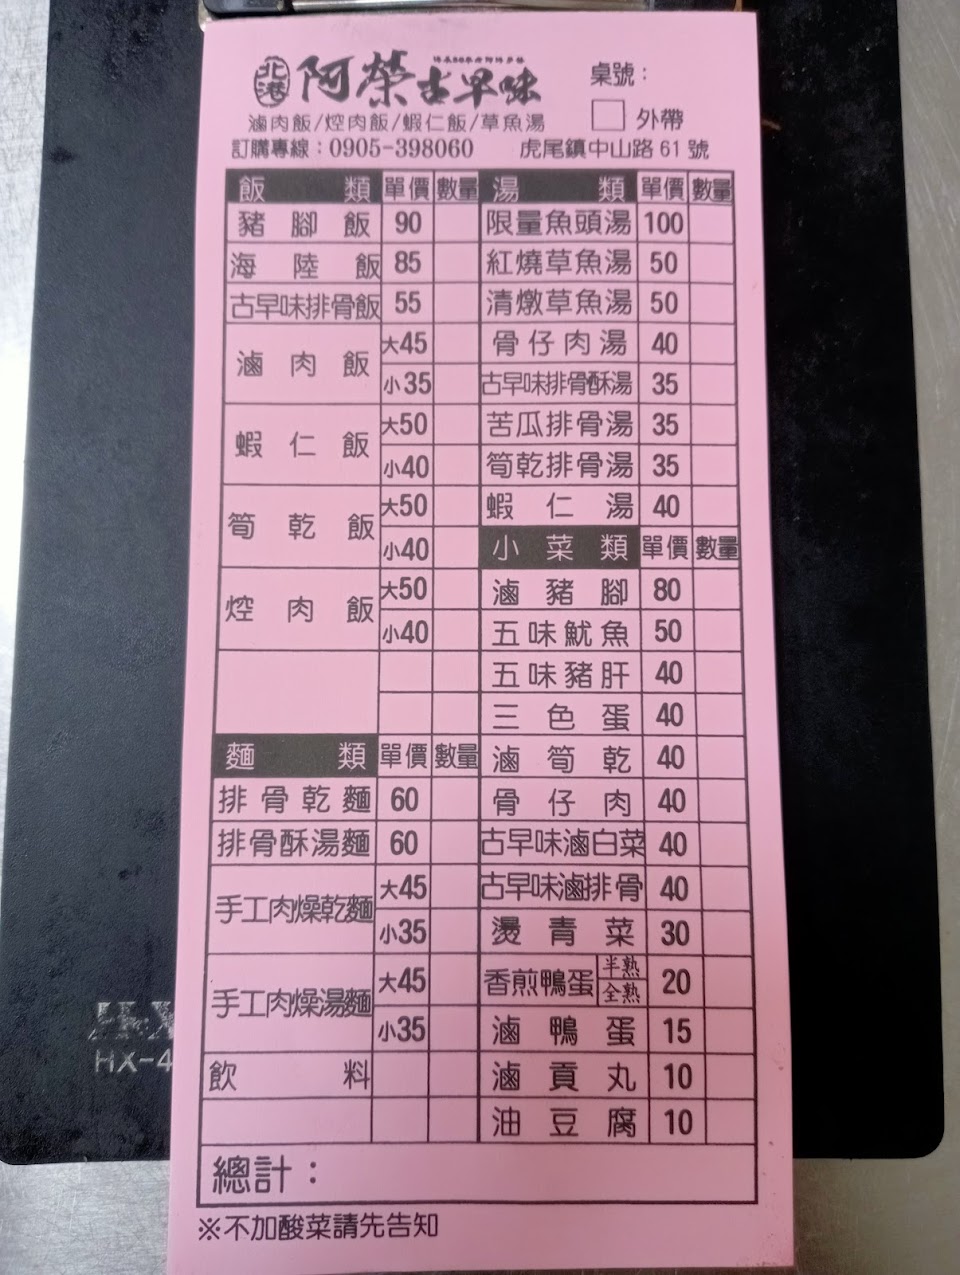 北港 阿榮古早味
桌號：
滷肉飯/焢肉飯/蝦仁飯/草魚湯
外帶
訂購專線：0905-398060 虎尾鎮中山路61號
飯類 單價 數量
豬腳飯 90
海陸飯 85
古早味排骨飯 55
滷肉飯 大45
小35
蝦仁飯 大50
小40
筍乾飯 大50
小40
焢肉飯 大50
小40
麵類 單價 數量
排骨乾麵 60
排骨酥湯麵 60
手工肉燥乾麵 大45
小35
手工肉燥湯麵 大45
小35
飲料
湯類 單價 數量
限量魚頭湯 100
紅燒草魚湯 50
清燉草魚湯 50
骨仔肉湯 40
古早味排骨酥湯 35
苦瓜排骨湯 35
筍乾排骨湯 35
蝦仁湯 40
小菜類 單價 數量
滷豬腳 80
五味魷魚 50
五味豬肝 40
三色蛋 40
滷筍乾 40
骨仔肉 40
古早味滷白菜 40
古早味滷排骨 40
燙青菜 30
香煎鴨蛋 半熟 全熟 20
滷鴨蛋 15
滷貢丸 10
油豆腐 10
總計：
※不加酸菜請先告知
HX-4